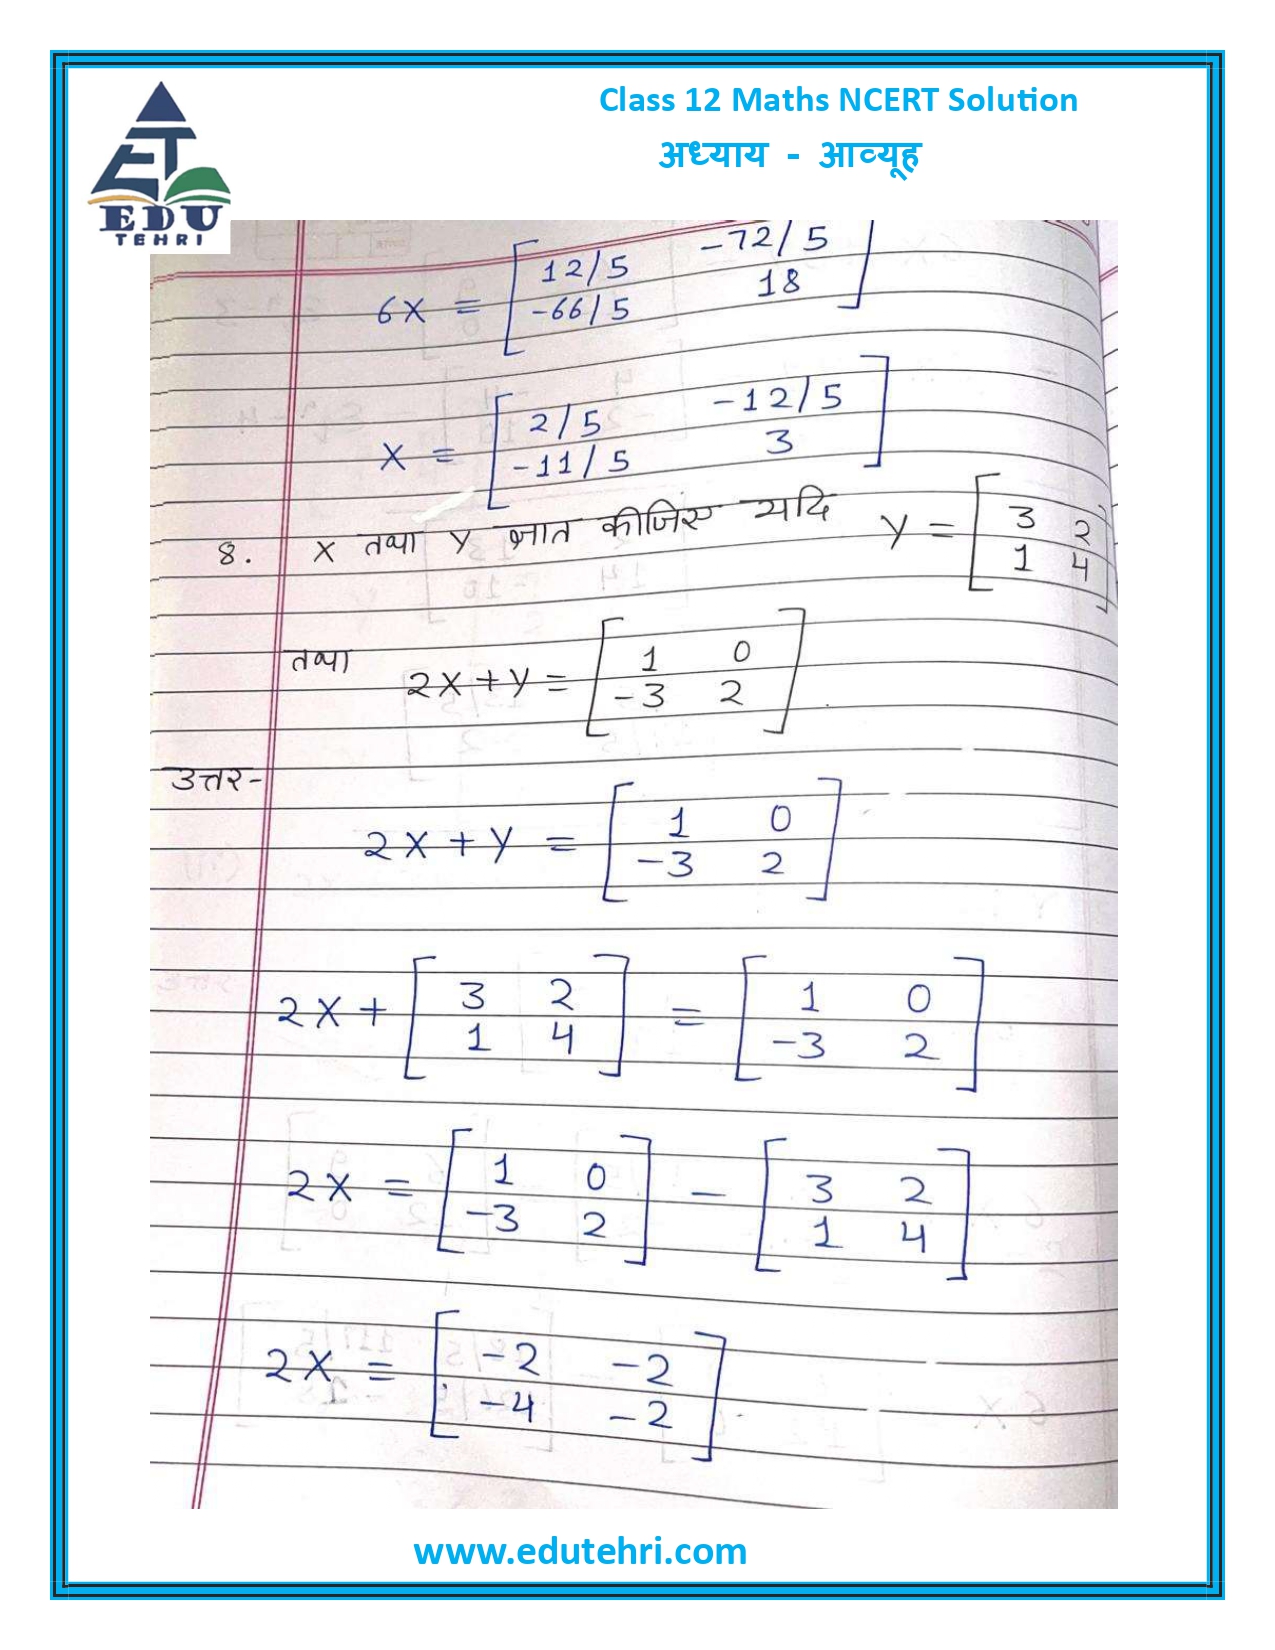 Class 12 Maths NCERT Solution
अध्याय - आव्यूह
EDU
TEHRI
6X = [12/5 -72/5
-66/5 18]
X = [2/5 -12/5
-11/5 3]
8. X तथा Y ज्ञात कीजिए यदि Y = [3 2
1 4]
तथा 2X+Y = [1 0
-3 2]
उत्तर-
2X + Y = [1 0
-3 2]
2X + [3 2
1 4] = [1 0
-3 2]
2X = [1 0
-3 2] - [3 2
1 4]
2X = [-2 -2
-4 -2]
www.edutehri.com